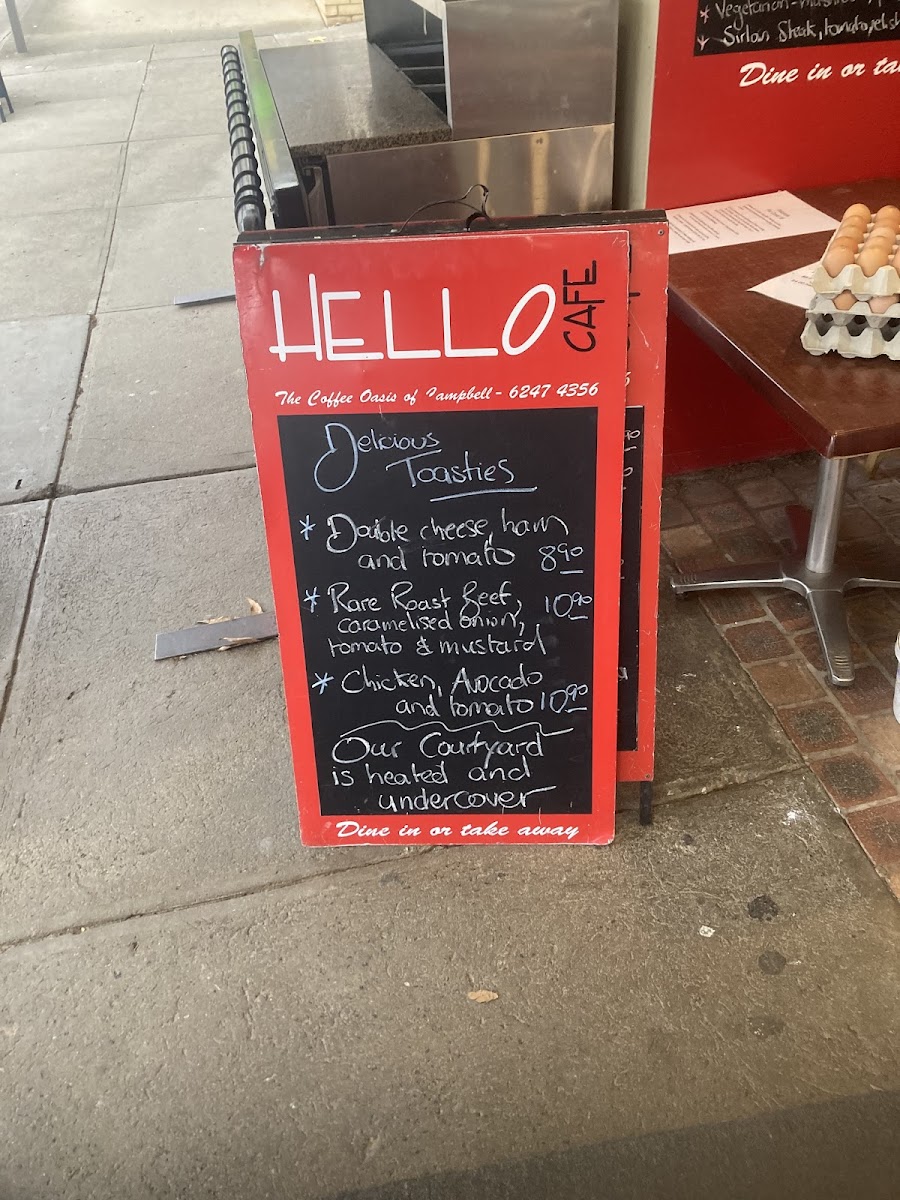 Vegetarian-mushroom
* Sirloin Steak, tomato,
Dine in or
HELLO CAFE
The Coffee Oasis of Campbell - 6247 4356
Delicious
Toasties
* Double cheese, ham
and tomato 8.90
* Rare Roast Beef, 10.90
caramelised onion,
tomato & mustard
* Chicken, Avocado
and tomato 10.90
Our Courtyard
is heated and
undercover
Dine in or take away